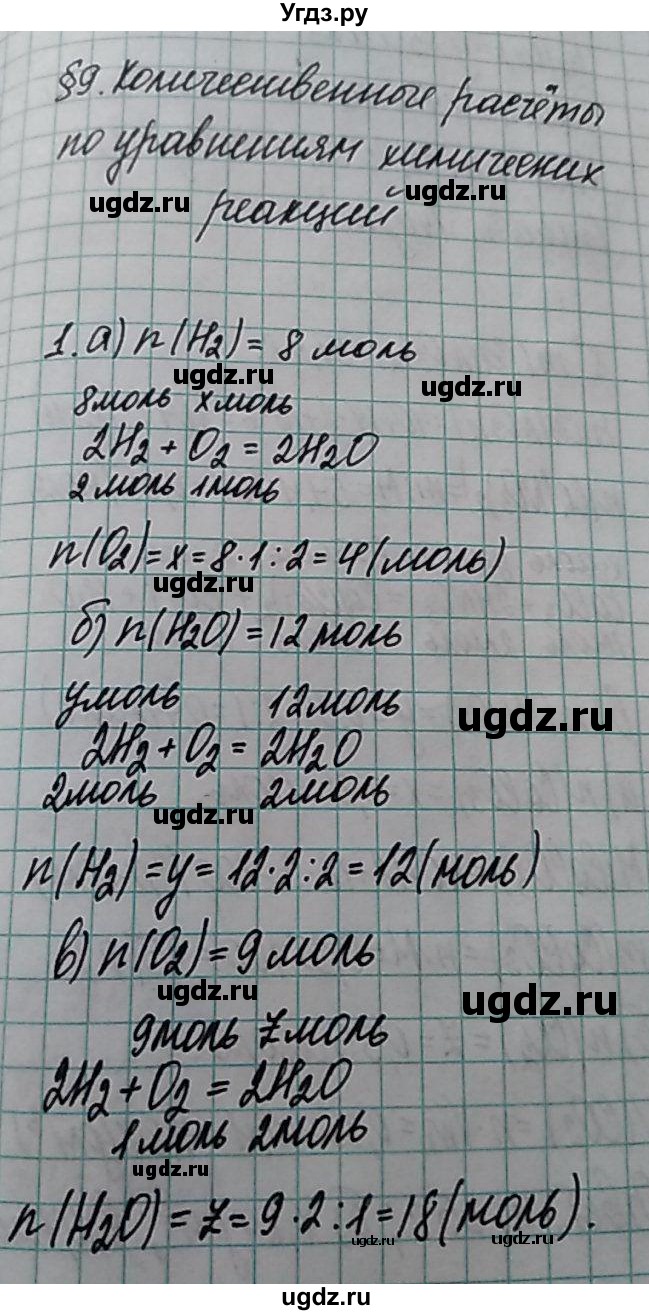 Угдз.ру
§9. Количественные расчёты
по уравнениям химических
ugdz.ru ugdz.ru
реакций
1. а) n(H₂) = 8 моль
ugdz.ru
8моль xмоль
2H₂ + O₂ = 2H₂O
2 моль 1моль
n(O₂) = x = 8·1:2 = 4(моль)
ugdz.ru
б) n(H₂O) = 12 моль
yмоль 12моль
ugdz.ru
2H₂ + O₂ = 2H₂O
2моль 2моль
ugdz.ru
n(H₂) = y = 12·2:2 = 12(моль)
в) n(O₂) = 9 моль
ugdz.ru ugdz.ru
9моль zмоль
2H₂ + O₂ = 2H₂O
1моль 2моль
ugdz.ru
n(H₂O) = z = 9·2:1 = 18(моль).
ugdz.ru ugdz.ru
ugdz.ru